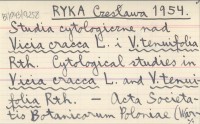 RYKA Czesława 1954.
Studia cytologiczne nad
Vicia cracca L. i V. tenuifolia
Rth. Cytological studies in
Vicia cracca L. and V. tenui-
folia Rth. — Acta Societa-
tis Botanicorum Poloniae (War-